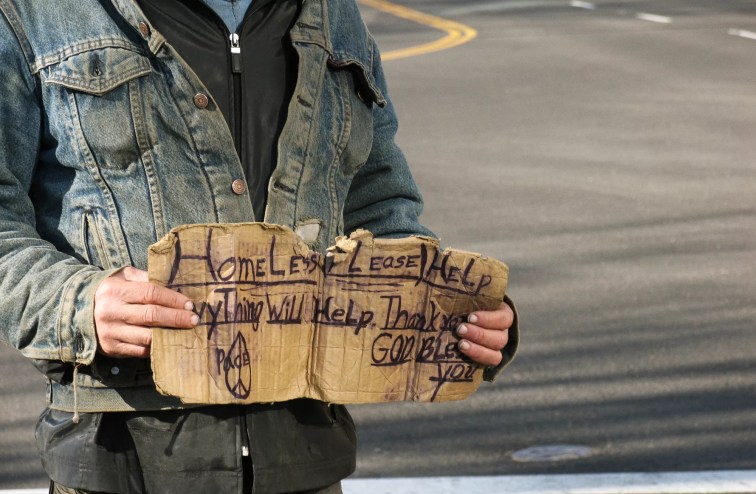 HomeLess PLease HeLp
AnyThing WiLL HeLp. Thank You
GOD BLess
peace
you